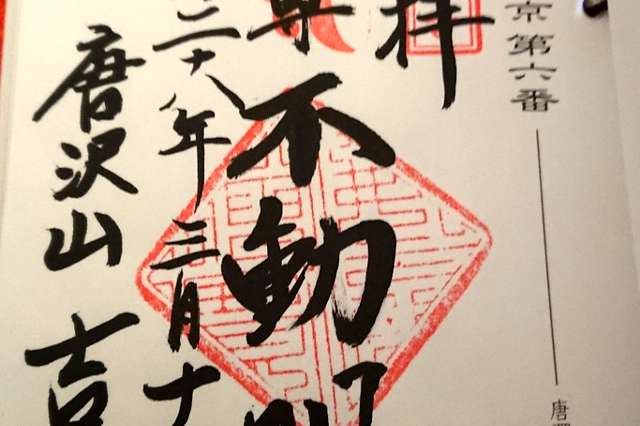 京第六番
唐澤
拝
尊不動明
二十八年三月十
唐沢山吉